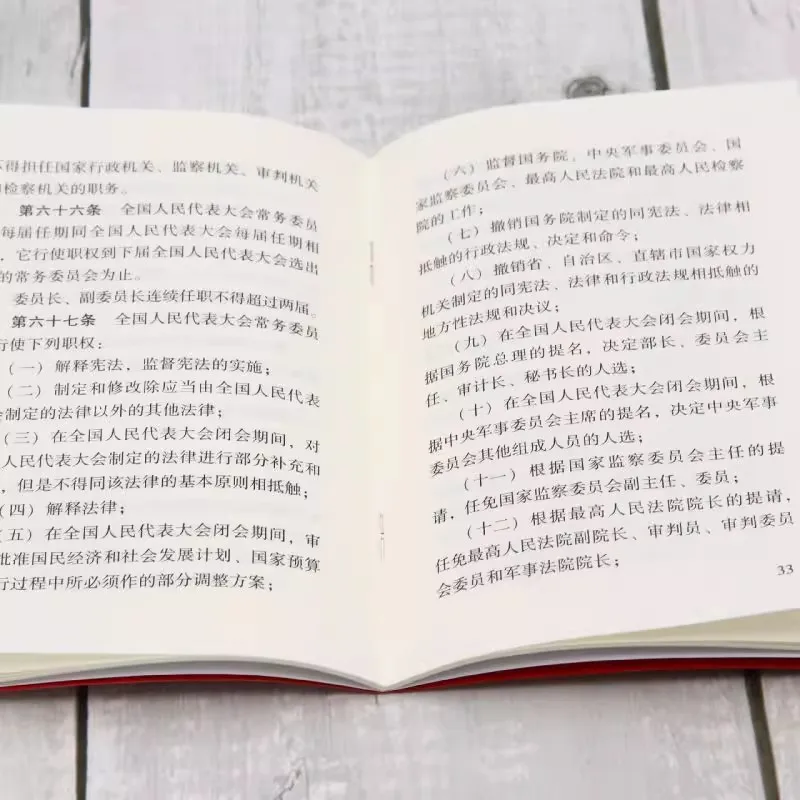 得担任国家行政机关、监察机关、审判机关
检察机关的职务。
第六十六条 全国人民代表大会常务委员
每届任期同全国人民代表大会每届任期相
，它行使职权到下届全国人民代表大会选出
的常务委员会为止。
委员长、副委员长连续任职不得超过两届。
第六十七条 全国人民代表大会常务委员
行使下列职权：
（一）解释宪法，监督宪法的实施；
（二）制定和修改除应当由全国人民代表
制定的法律以外的其他法律；
（三）在全国人民代表大会闭会期间，对
人民代表大会制定的法律进行部分补充和
，但是不得同该法律的基本原则相抵触；
（四）解释法律；
（五）在全国人民代表大会闭会期间，审
批准国民经济和社会发展计划、国家预算
行过程中所必须作的部分调整方案；
（六）监督国务院、中央军事委员会、国
家监察委员会、最高人民法院和最高人民检察
院的工作；
（七）撤销国务院制定的同宪法、法律相
抵触的行政法规、决定和命令；
（八）撤销省、自治区、直辖市国家权力
机关制定的同宪法、法律和行政法规相抵触的
地方性法规和决议；
（九）在全国人民代表大会闭会期间，根
据国务院总理的提名，决定部长、委员会主
任、审计长、秘书长的人选；
（十）在全国人民代表大会闭会期间，根
据中央军事委员会主席的提名，决定中央军事
委员会其他组成人员的人选；
（十一）根据国家监察委员会主任的提
请，任免国家监察委员会副主任、委员；
（十二）根据最高人民法院院长的提请，
任免最高人民法院副院长、审判员、审判委员
会委员和军事法院院长；
33